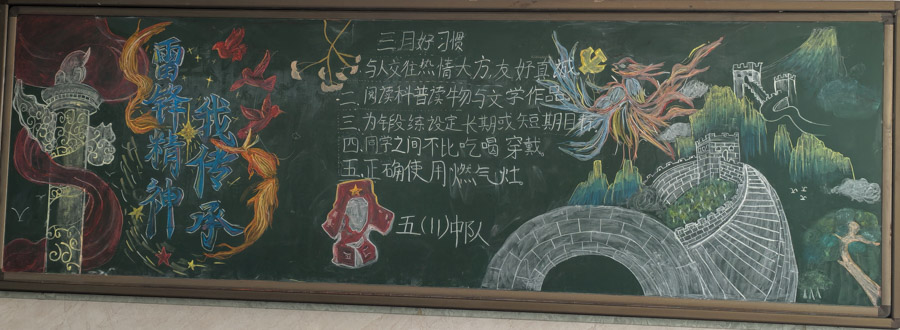 雷锋精神
我传承
三月好习惯
一、与人交往热情大方,友好真诚
二、阅读科普读物与文学作品
三、为锻练设定长期或短期目标
四.同学之间不比吃喝穿戴.
五.正确使用燃气灶.
五(11)中队